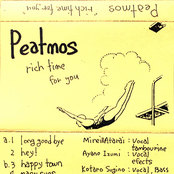 Peatmos
"rich time for you"
Peatmos
rich time
for you
a.1 long good bye
2 hey!
b.3 happy town
Mirei Hattori : vocal
tambourine
Ayano Izumi : vocal
effects
Kotaro Sugino : vocal, Bass